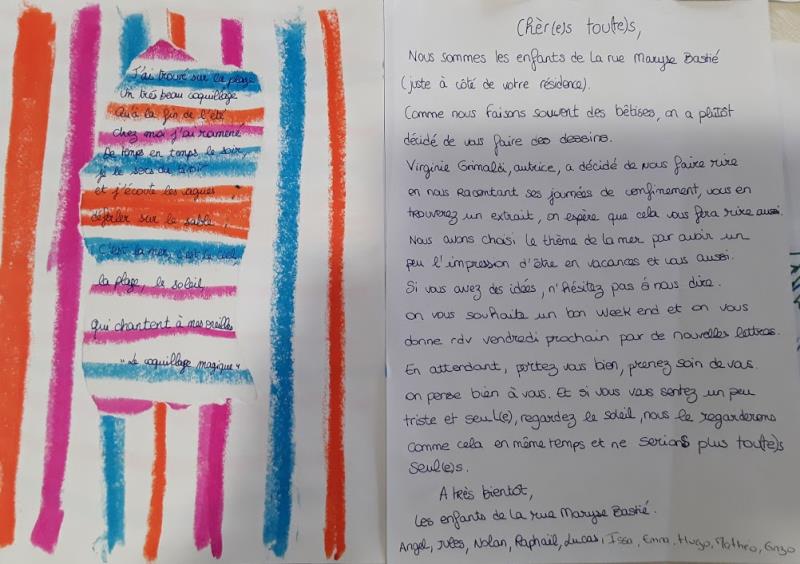 J'ai trouvé sur la plage
Un très beau coquillage
Qu'à la fin de l'été
Chez moi j'ai ramené
De temps en temps le soir,
je le sors du tiroir
et j'écoute les vagues,
déferler sur le sable,
C'est la mer, c'est le ciel,
la plage, le soleil,
qui chantent à mes oreilles
"Le coquillage magique"
Chèr(e)s tou(te)s,
Nous sommes les enfants de la rue Maryse Bastié
(juste à côté de votre résidence).
Comme nous faisons souvent des bêtises, on a plutôt
décidé de vous faire des dessins.
Virginie Grimaldi, autrice, a décidé de nous faire rire
en nous racontant ses journées de confinement, vous en
trouverez un extrait, on espère que cela vous fera rire aussi.
Nous avons choisi le thème de la mer pour avoir un
peu l'impression d'être en vacances et vous aussi.
Si vous avez des idées, n'hésitez pas à nous dire.
on vous souhaite un bon week end et on vous
donne rdv vendredi prochain par de nouvelles lettres.
En attendant, portez vous bien, prenez soin de vous.
on pense bien à vous. Et si vous vous sentez un peu
triste et seul(e), regardez le soleil, nous le regarderons
comme cela en même temps et ne serions plus tou(te)s
seul(e)s.
A très bientôt,
Les enfants de la rue Maryse Bastié.
Angel, Jules, Nolan, Raphaël, Lucas, Issa, Emna, Hugo, Mathéo, Enzo